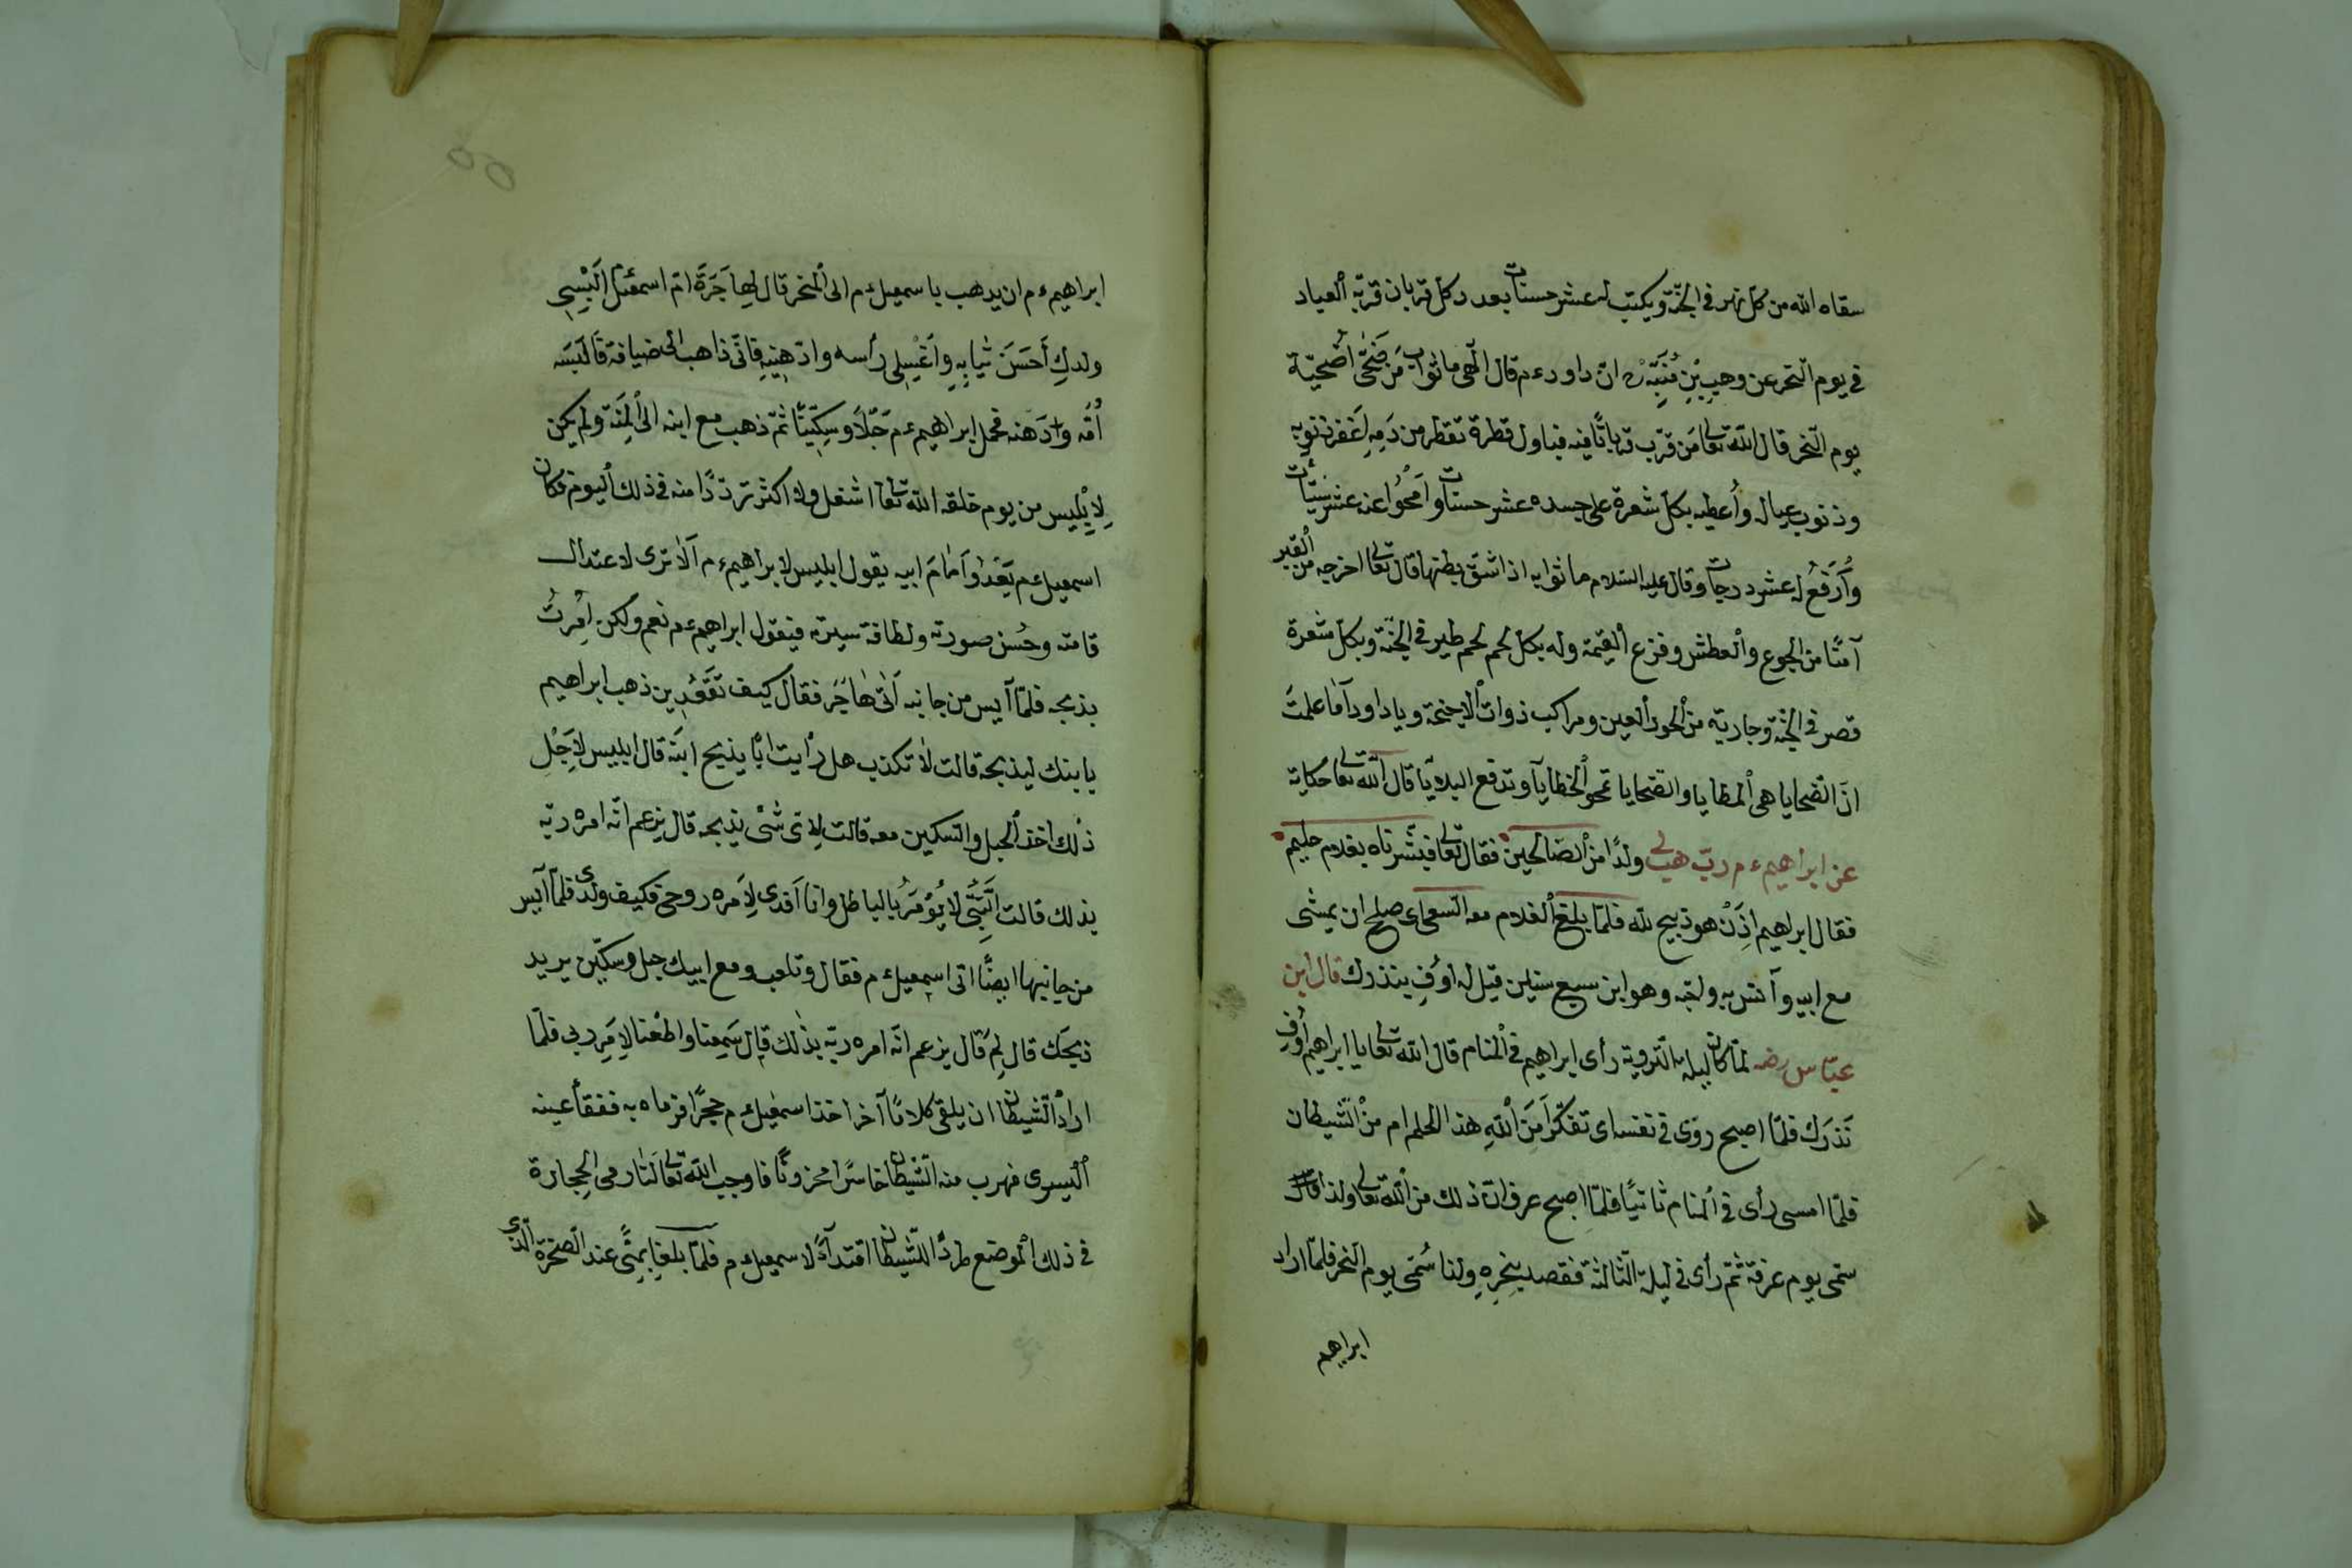 سقاه الله من كل نهر فى الجنّة ويكتب له عشر حسنات بعدد كل قربان قربّه العباد
فى يوم النّحر عن وهب بْنِ مُنَبِّهْ رض انّ داود ءم قال الٓهى ما ثواب مَن ضَحّٰى اُضْحِيّة
يوم النّحر قال اللّه تعالى مَن قرّب قربانًا فيه فباول قطرة تقطر من دَمِهِ اَغفر ذنوبه
وذنوب عياله وأُعطيه بكلّ شعرة على جسده عشر حسنات وَاَمْحُوا عنه عشر سيّئات
وَأَرْفَعُ له عشر درجات وقال عليه السّلام ما ثوابه اذا شقّ بطنها قال تعالى اخرجه من القبر
آمنًا من الجوع والعطش وفزع القيمة وله بكلّ لحم لحم طير فى الجنّة وبكلّ شعرة
قصر فى الجنّة وجارية من الحور العين ومراكب ذوات الاجنحة ويا داود اَمَا علمتَ
انّ الضّحايا هى المطايا والضّحايا تمحو الخطايا وتدفع البلايا قال اللّه تعالى حكاية
عن ابراهيم ءم ربّ هب لى ولدًا من الصّالحين فقال تعالى فبشّرناه بغلام حليم
فقال ابراهيم اِذَنْ هو ذبيح للّه فلمّا بلغ الغلام معه السّعى اى صلح ان يمشى
مع ابيه وآنس به ولحبّه وهو ابن سبع سنين قيل له اَوْفِ بنذرك قال ابن
عبّاس رضه لمّا كان ليلة التّروية رأى ابراهيم فى المنام قال اللّه تعالى يا ابراهيم اَوْفِ
نَذْرَك فلمّا اصبح روّى فى نفسه اى تفكّر أَمِنَ اللّهِ هذا الحلم ام من الشّيطان
فلمّا امسى رأى فى المنام ثانيًا فلمّا اصبح عرف انّ ذلك من اللّه تعالى ولذا قال
سمّى يوم عرفة ثمّ رأى فى ليلة الثّالثة فقصد بنحره ولذا سُمّى يوم النّحر فلمّا اراد
ابراهيم
ابراهيم ءم ان يذهب باسمعيل ءم الى المنحر قال لهاجَرَةَ امّ اسمعيل اَلْبِسِى
ولدكِ اَحْسَنَ ثيابِهِ وَاغْسِلى رأسه وادّهِنِيهِ فانّى ذاهب الى ضيافة فالبسَته
اُمّه وادّهنه فحمل ابراهيم ءم حَبْلًا وسِكّينًا ثمّ ذهب مع ابنه الى المِنَة ولم يكن
لِاِبْليس من يوم خلقه اللّه تعالى اشغل ولا اكثر تردّدًا منه فى ذلك اليوم فكان
اسمعيل ءم يَغْدُوا اَمَامَ ابيه يقول ابليس لابراهيم ءم اَلَا ترى لاعتدال
قامته وحُسْن صورته ولطافة سيرته فيقول ابراهيم ءم نعم ولكن اُمِرْتُ
بذبحه فلمّا آيس من جانبه اَتٰى هٰاجَر فقال كيف تقعُدين ذهب ابراهيم
بابنك ليذبحه قالت لَا تكذب هل رأيت ابًا يذبح ابنه قال ابليس لِاَجْلِ
ذٰلك اخذ الحبل والسّكين معه قالت لِاىّ شَىْ يذبحه قال يزعم انّه امره ربّه
بذلك قالت النَّبِىُّ لا يُؤْمَرُ بالباطل وانا اَفدى لِاَمره روحى فكيف ولدى فلمّا آيس
من جانبها ايضًا اتى اسمعيل ءم فقال وتلعب ومع ابيك حبل وسكّين يريد
ذبحك قال لِمَ قال يزعم انّه امره ربّه بذٰلك قال سَمِعنا واطَعْنا لِاَمْرِ ربى فلمّا
اراد الشّيطان ان يلقى كلامًا آخر اخذ اسمعيل ءم حجرًا فرماه به ففقأ عينه
اليسرى فهرب منه الشّيطان خاسرًا محزونًا فاوجب اللّه تعالى لَنَا رمى الحِجارة
فى ذلك الموضع طردًا للشّيطان اقتدآءً لاسمعيل ءم فلمّا بلغا بِمِنًى عند الصّخرة الّذى